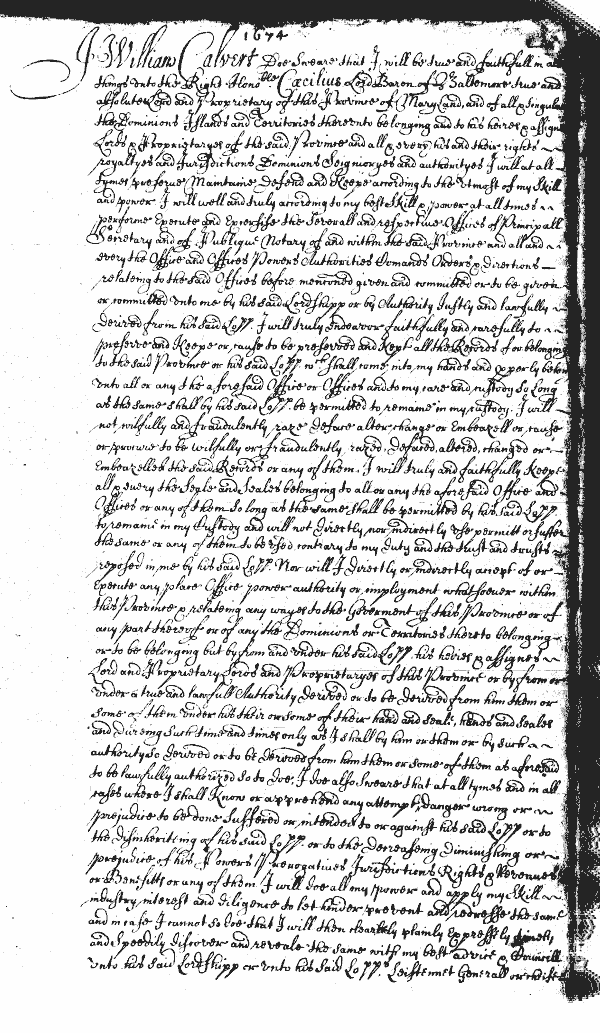 1674
I William Calvert Doe Sweare that I will be true and faithfull in all
things vnto the Right Hono:ble Cæcilius Lord Baron of Baltemore true and
absolute Lord and Proprietary of this Province of Mary Land, and of all & singular
the Dominions Islands and Territories thereunto belonging and to his heires & assignes
Lords & Proprietaryes of the said Province and all & every his and their rights
royaltyes and Jurisdictions Dominions Seignioryes and authorityes I will at all
tymes preserue Maintaine Defend and Keepe according to the vtmost of my Skill
and power I will well and truly according to my best Skill & power at all times
performe Execute and Exercise the severall and respective Offices of Principall
Secretary and of Publique Notary of and within the said Province and all and
every the Office and Offices Powers Authorities Comands Orders & directions
relateing to the said Offices before mentioned given and committed or to be given
or committed vnto me by his said Lordshipp or by Authority Justly and lawfully
derived from his said Lopp. I will truly endeavor faithfully and carefully to
preserve and Keepe or cause to be preserved and Kept all the Records of or belonging
to the said Province or his said Lopp wch shall come into my hands and properly belong
vnto all or any the aforesaid Office or Offices and to my care and custody so long
as the same shall by his said Lopp. be permitted to remaine in my custody. I will
not wilfully and fraudulently raze deface alter change or Embeazell or cause
or procure to be wilfully or fraudulently razed, defaced, altered, changed or
Embeazelled the said Records or any of them. I will truly and faithfully Keepe
all & every the Seale and Seales belonging to all or any the aforesaid Office and
Offices or any of them so long as the same shall be permitted by his said Lopp.
to remaine in my Custody and will not directly nor indirectly vse permitt or suffer
the same or any of them to be vsed contrary to my duty and the trust and trusts
reposed in me by his said Lopp. Nor will I directly or indirectly accept of or
Execute any place Office power authority or imployment whatsoever within
this Province & relateing any wayes to the Goverment of this Province or of
any part thereof or of any the Dominions or Territories thereto belonging
or to be belonging but by from and vnder his said Lopp his heires & assignes
Lord and Proprietary Lords and Proprietaryes of this Province or by from or
vnder a true and lawfull Authority derived or to be derived from him them or
some of them vnder his their or some of their hand and seale, hands and seales
and dureing such time and times only as I shall by him or them or by such
authority so derived or to be derived from him them or some of them as aforesaid
to be lawfully authorized so to doe, I doe also sweare that at all tymes and in all
cases where I shall Know or apprehend any attempt, danger wrong or
prejudice to be done suffered or intended to or against his said Lopp or to
the disinheriting of his said Lopp. or to the decreasing diminishing or
prejudice of his Powers Prerogatives Jurisdictions Rights & Revenues
or Benefitts or any of them. I will doe all my power and apply my Skill
industry interest and diligence to let hinder prevent and redresse the same
and in case I cannot so doe that I will then clearely plainly Expressly
and speedily discover and reveale the same with my best advice & Councill
vnto his said Lordshipp or vnto his said Lopps Leiftennet Generall or cheife